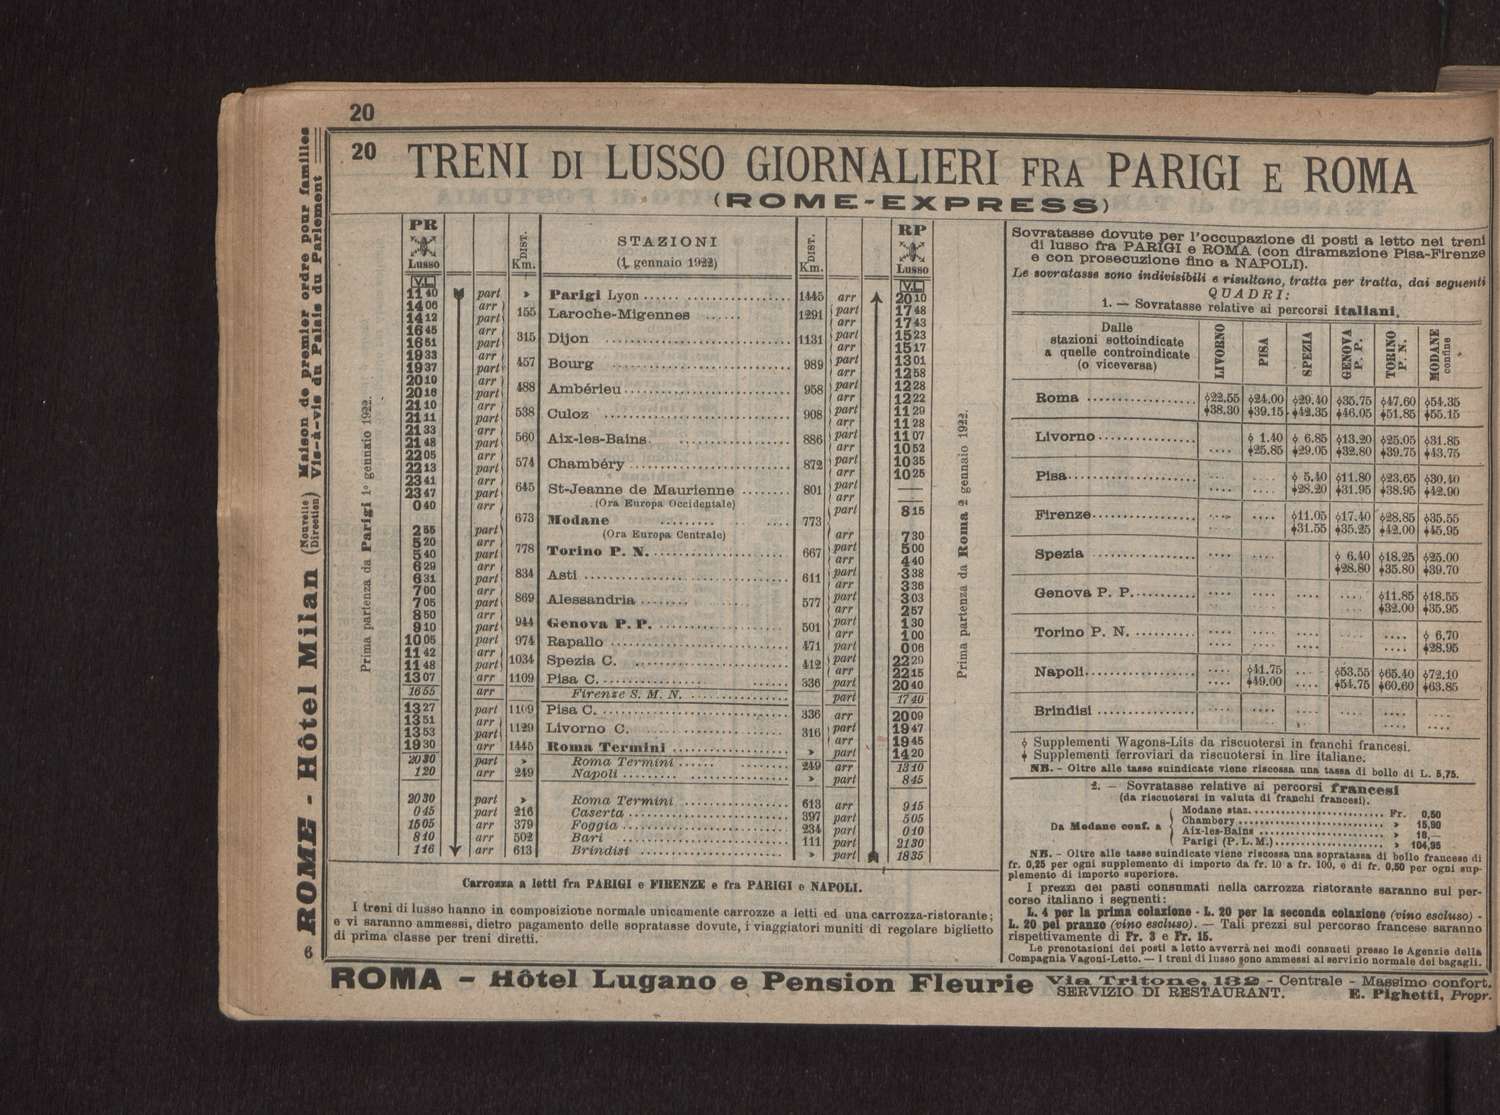 20
20 TRENI DI LUSSO GIORNALIERI FRA PARIGI E ROMA
(ROME-EXPRESS)
PR Lusso DIST. Km. STAZIONI (1 gennaio 1922) DIST. Km. RP Lusso
V.L. V.L.
11 40 part » Parigi Lyon 1445 arr 20 10
14 06 arr 155 Laroche-Migennes 1291 part 17 48
14 12 part arr 17 43
16 45 arr 315 Dijon 1131 part 15 23
16 51 part arr 15 17
19 33 arr 457 Bourg 989 part 13 01
19 37 part arr 12 58
20 10 arr 488 Ambérieu 958 part 12 28
20 16 part arr 12 22
21 10 arr 538 Culoz 908 part 11 29
21 11 part arr 11 28
21 33 arr 560 Aix-les-Bains 886 part 11 07
21 48 part arr 10 52
22 05 arr 574 Chambéry 872 part 10 35
22 13 part arr 10 25
23 41 arr 645 St-Jeanne de Maurienne 801 part
23 47 part arr
0 40 arr (Ora Europa Occidentale) part 8 15
673 Modane 773
2 55 part (Ora Europa Centrale) arr 7 30
5 20 arr 778 Torino P. N. 667 part 5 00
5 40 part arr 4 40
6 29 arr 834 Asti 611 part 3 38
6 31 part arr 3 36
7 00 arr 869 Alessandria 577 part 3 03
7 05 part arr 2 57
8 50 arr 944 Genova P. P. 501 part 1 30
9 10 part arr 1 00
10 05 part 974 Rapallo 471 part 0 06
11 42 arr 1034 Spezia C. 412 part 22 29
11 48 part arr 22 15
13 07 arr 1109 Pisa C. 336 part 20 40
16 55 arr Firenze S. M. N. part 17 40
13 27 part 1109 Pisa C. 336 arr 20 09
13 51 arr 1129 Livorno C. 316 part 19 47
13 53 part arr 19 45
19 30 arr 1445 Roma Termini » part 14 20
20 30 part » Roma Termini 249 arr 13 10
1 20 arr 249 Napoli » part 8 45
20 30 part » Roma Termini 613 arr 9 15
0 45 part 216 Caserta 397 part 5 05
15 05 arr 379 Foggia 234 part 0 10
8 10 arr 502 Bari 111 part 21 30
1 16 arr 613 Brindisi » part 18 35
Prima partenza da Parigi 1° gennaio 1922.
Prima partenza da Roma 2 gennaio 1922.
Carrozza a letti fra PARIGI e FIRENZE e fra PARIGI e NAPOLI.
I treni di lusso hanno in composizione normale unicamente carrozze a letti ed una carrozza-ristorante;
e vi saranno ammessi, dietro pagamento delle sopratasse dovute, i viaggiatori muniti di regolare biglietto
di prima classe per treni diretti.
Sovratasse dovute per l'occupazione di posti a letto nei treni
di lusso fra PARIGI e ROMA (con diramazione Pisa-Firenze
e con prosecuzione fino a NAPOLI).
Le sovratasse sono indivisibili e risultano, tratta per tratta, dai seguenti
QUADRI:
1. — Sovratasse relative ai percorsi italiani.
Dalle stazioni sottoindicate a quelle controindicate (o viceversa) LIVORNO PISA SPEZIA GENOVA P. P. TORINO P. N. MODANE confine
Roma 22.55 24.00 29.40 35.75 47.60 54.35
38.30 39.15 42.35 46.05 51.85 55.15
Livorno 1.40 6.85 13.20 25.05 31.85
25.85 29.05 32.80 39.75 43.75
Pisa 5.40 11.80 23.65 30.40
28.20 31.95 38.95 42.90
Firenze 11.05 17.40 28.85 35.55
31.55 35.25 42.00 45.95
Spezia 6.40 18.25 25.00
28.80 35.80 39.70
Genova P. P. 11.85 18.55
32.00 35.95
Torino P. N. 6.70
28.95
Napoli 41.75 53.55 65.40 72.10
49.00 54.75 60.60 63.85
Brindisi
Supplementi Wagons-Lits da riscuotersi in franchi francesi.
Supplementi ferroviari da riscuotersi in lire italiane.
NB. - Oltre alle tasse suindicate viene riscossa una tassa di bollo di L. 5,75.
2. — Sovratasse relative ai percorsi francesi
(da riscuotersi in valuta di franchi francesi).
Da Modane conf. a
Modane staz. Fr. 0,50
Chambery » 15,90
Aix-les-Bains » 18,—
Parigi (P.L.M.) » 104,95
NB. - Oltre alle tasse suindicate viene riscossa una sopratassa di bollo francese di
fr. 0,25 per ogni supplemento di importo da fr. 10 a fr. 100, e di fr. 0,50 per ogni sup-
plemento di importo superiore.
I prezzi dei pasti consumati nella carrozza ristorante saranno sul per-
corso italiano i seguenti:
L. 4 per la prima colazione - L. 20 per la seconda colazione (vino escluso) -
L. 20 pel pranzo (vino escluso). — Tali prezzi sul percorso francese saranno
rispettivamente di Fr. 3 e Fr. 15.
Le prenotazioni dei posti a letto avverrà nei modi consueti presso le Agenzie della
Compagnia Vagoni-Letto. — I treni di lusso sono ammessi al servizio normale dei bagagli.
6 ROME - Hôtel Milan (Nouvelle Direction) Maison de premier ordre pour familles
Vis-à-vis du Palais du Parlement
ROMA - Hôtel Lugano e Pension Fleurie Via Tritone, 132 - Centrale - Massimo confort.
SERVIZIO DI RESTAURANT. E. Pighetti, Propr.